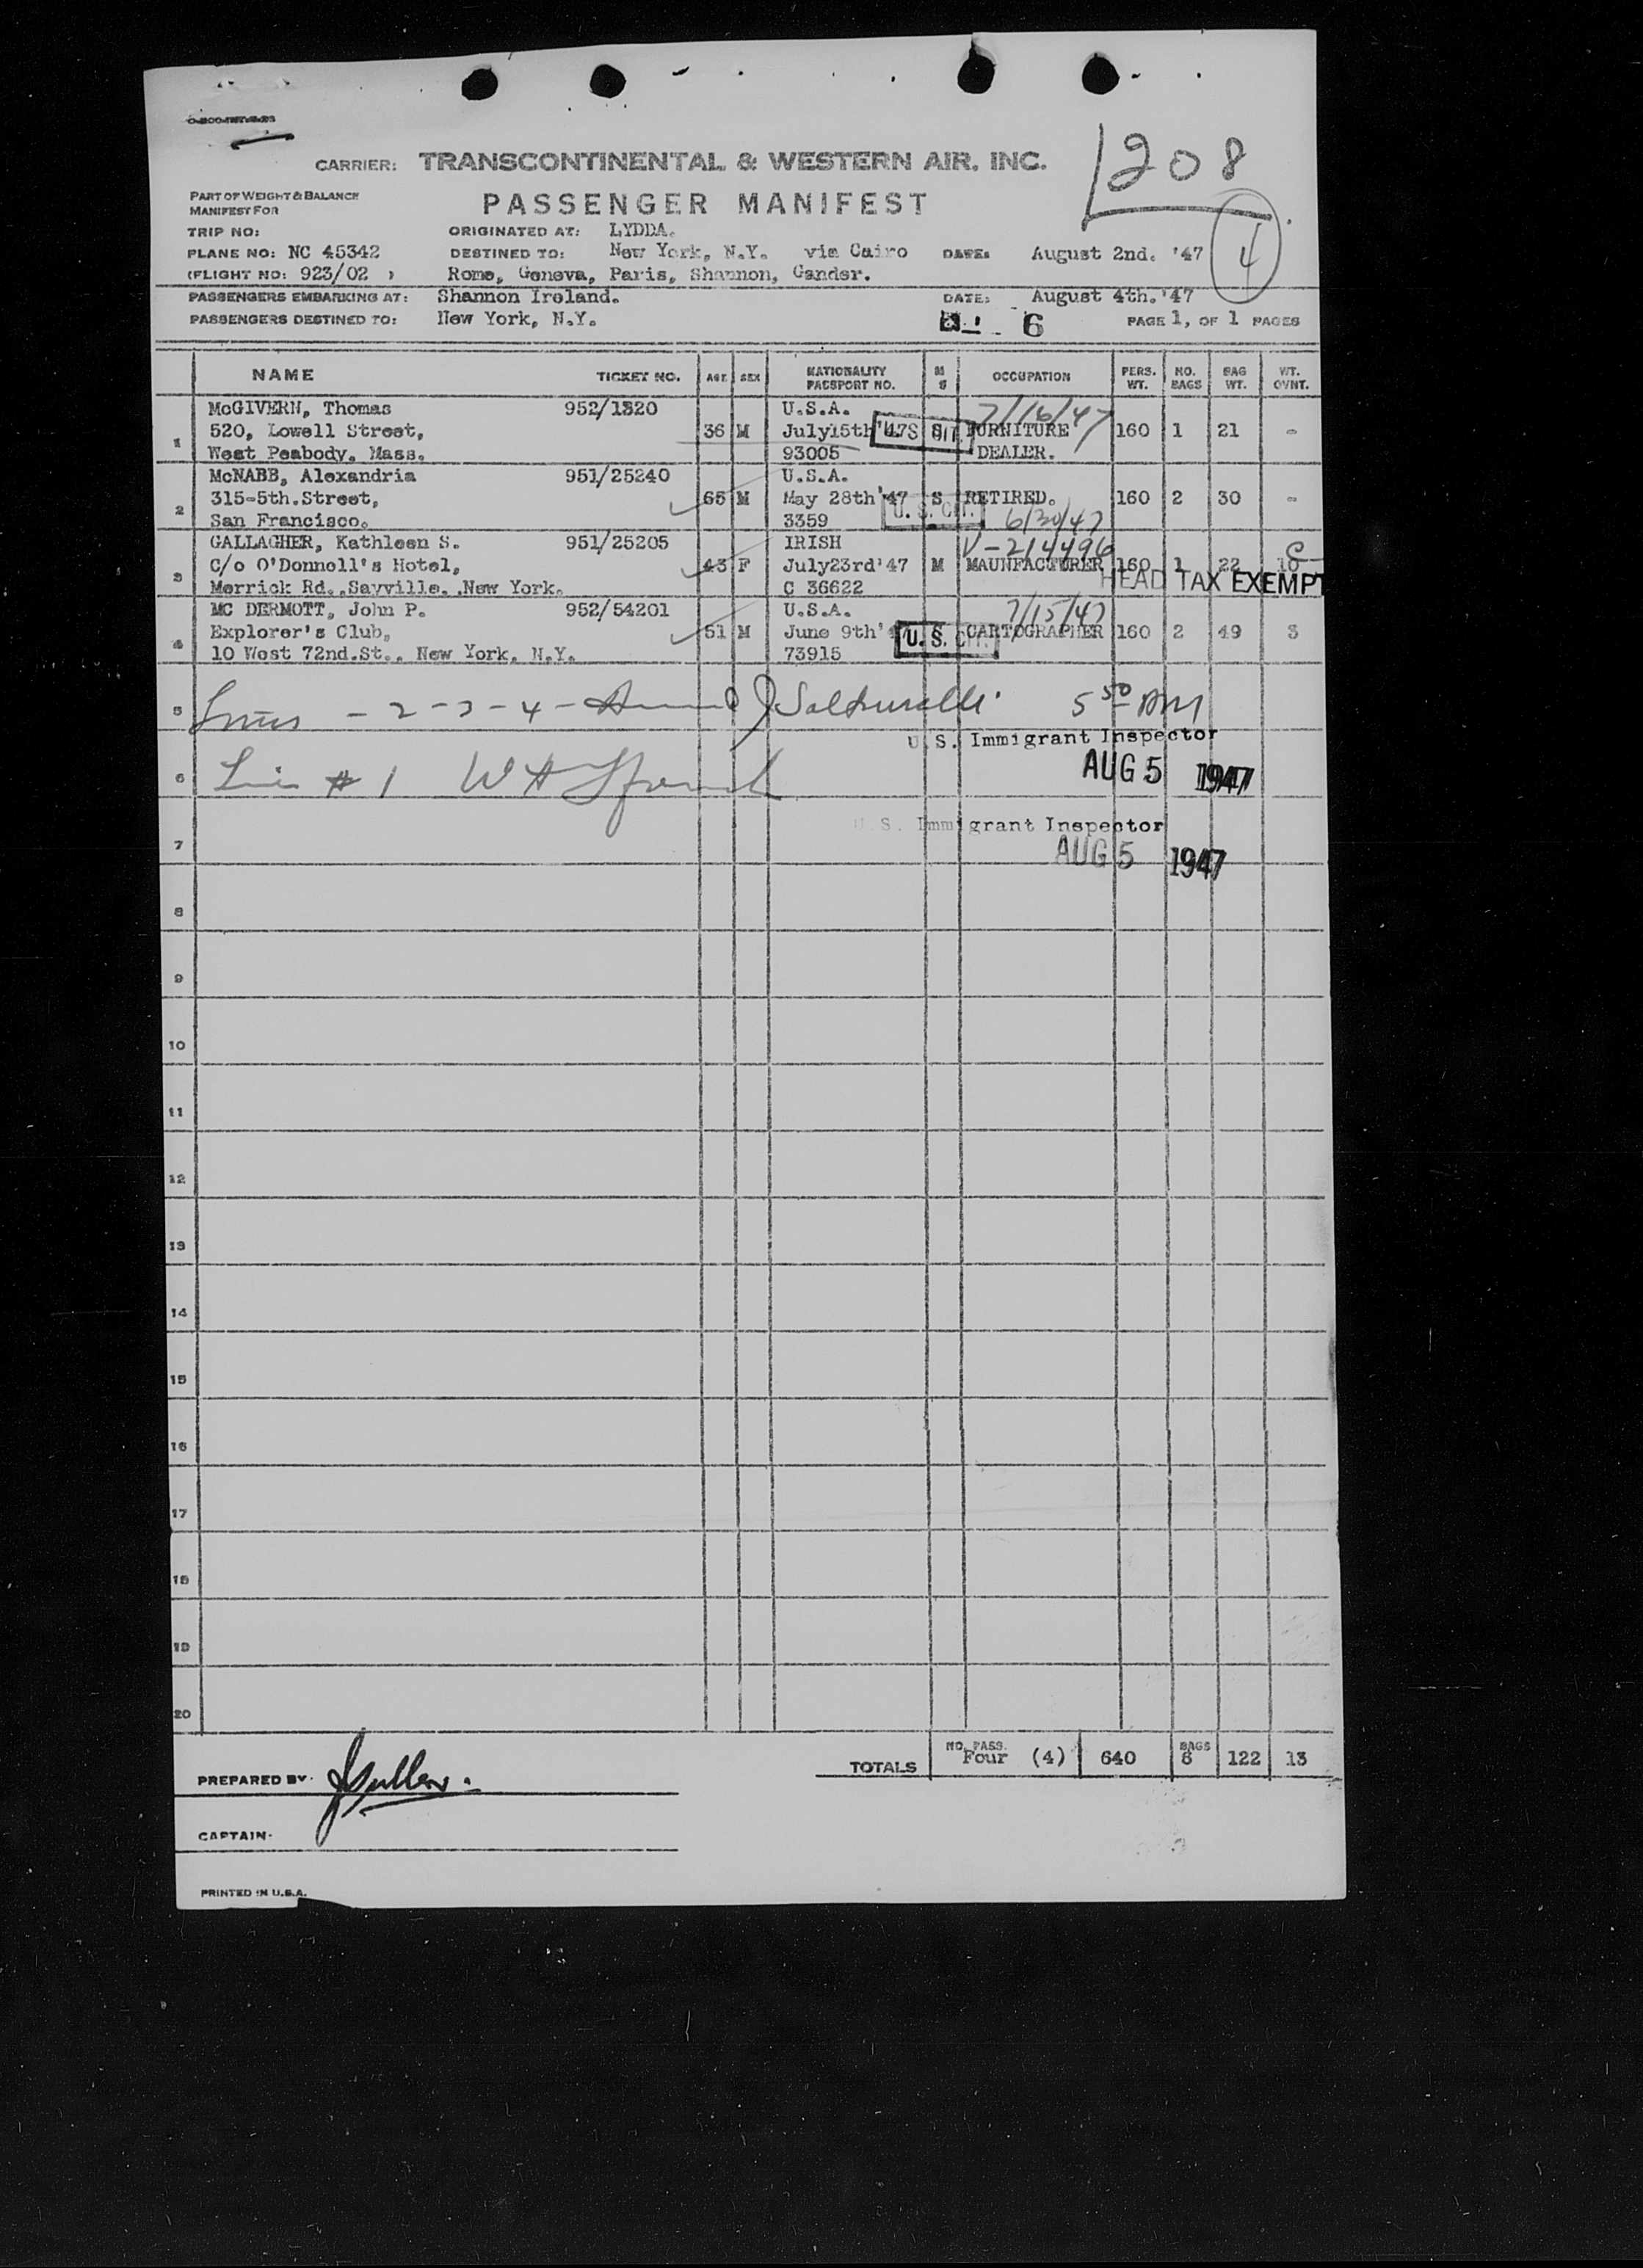 CARRIER: TRANSCONTINENTAL & WESTERN AIR, INC.
208
PART OF WEIGHT & BALANCE
MANIFEST FOR
PASSENGER MANIFEST
4
TRIP NO: ORIGINATED AT: LYDDA.
PLANE NO: NC 45342 DESTINED TO: New York, N.Y. via Cairo DATE: August 2nd. '47
(FLIGHT NO: 923/02 ) Rome, Geneva, Paris, Shannon, Gander.
PASSENGERS EMBARKING AT: Shannon Ireland. DATE: August 4th. '47
PASSENGERS DESTINED TO: New York, N.Y. 6 PAGE 1, OF 1 PAGES
NAME TICKET NO. AGE SEX NATIONALITY PASSPORT NO. M S OCCUPATION PERS. WT. NO. BAGS BAG WT. WT. OVNT.
McGIVERN, Thomas 952/1320 U.S.A. 7/16/47
1 520, Lowell Street, 36 M July15th'47 S FURNITURE 160 1 21 -
West Peabody, Mass. 93005 DEALER.
McNABB, Alexandria 951/25240 U.S.A.
2 315-5th.Street, 65 M May 28th'47 S RETIRED. 160 2 30 -
San Francisco. 3359 U. S. CIT. 6/30/47
GALLAGHER, Kathleen S. 951/25205 IRISH V-214496
3 C/o O'Donnell's Hotel, 43 F July23rd'47 M MAUNFACTURER 160 1 22 10
Merrick Rd.,Sayville,.New York. C 36622 HEAD TAX EXEMPT
MC DERMOTT, John P. 952/54201 U.S.A. 7/15/47
4 Explorer's Club, 51 M June 9th' U. S. CIT. CARTOGRAPHER 160 2 49 3
10 West 72nd.St., New York, N.Y. 73915
5 Lines - 2-3-4 - 5 50 AM
U.S. Immigrant Inspector
6 Line # 1 W H AUG 5 1947
U.S. Immigrant Inspector
7 AUG 5 1947
8
9
10
11
12
13
14
15
16
17
18
19
20
TOTALS NO. PASS. Four (4) 640 BAGS 6 122 13
PREPARED BY.
CAPTAIN.
PRINTED IN U.S.A.